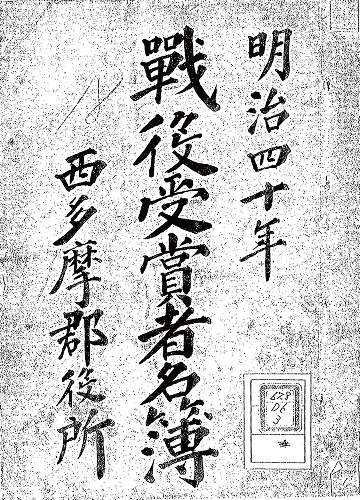 明治四十年
戰役受賞者名簿
西多摩郡役所
628
D6
3